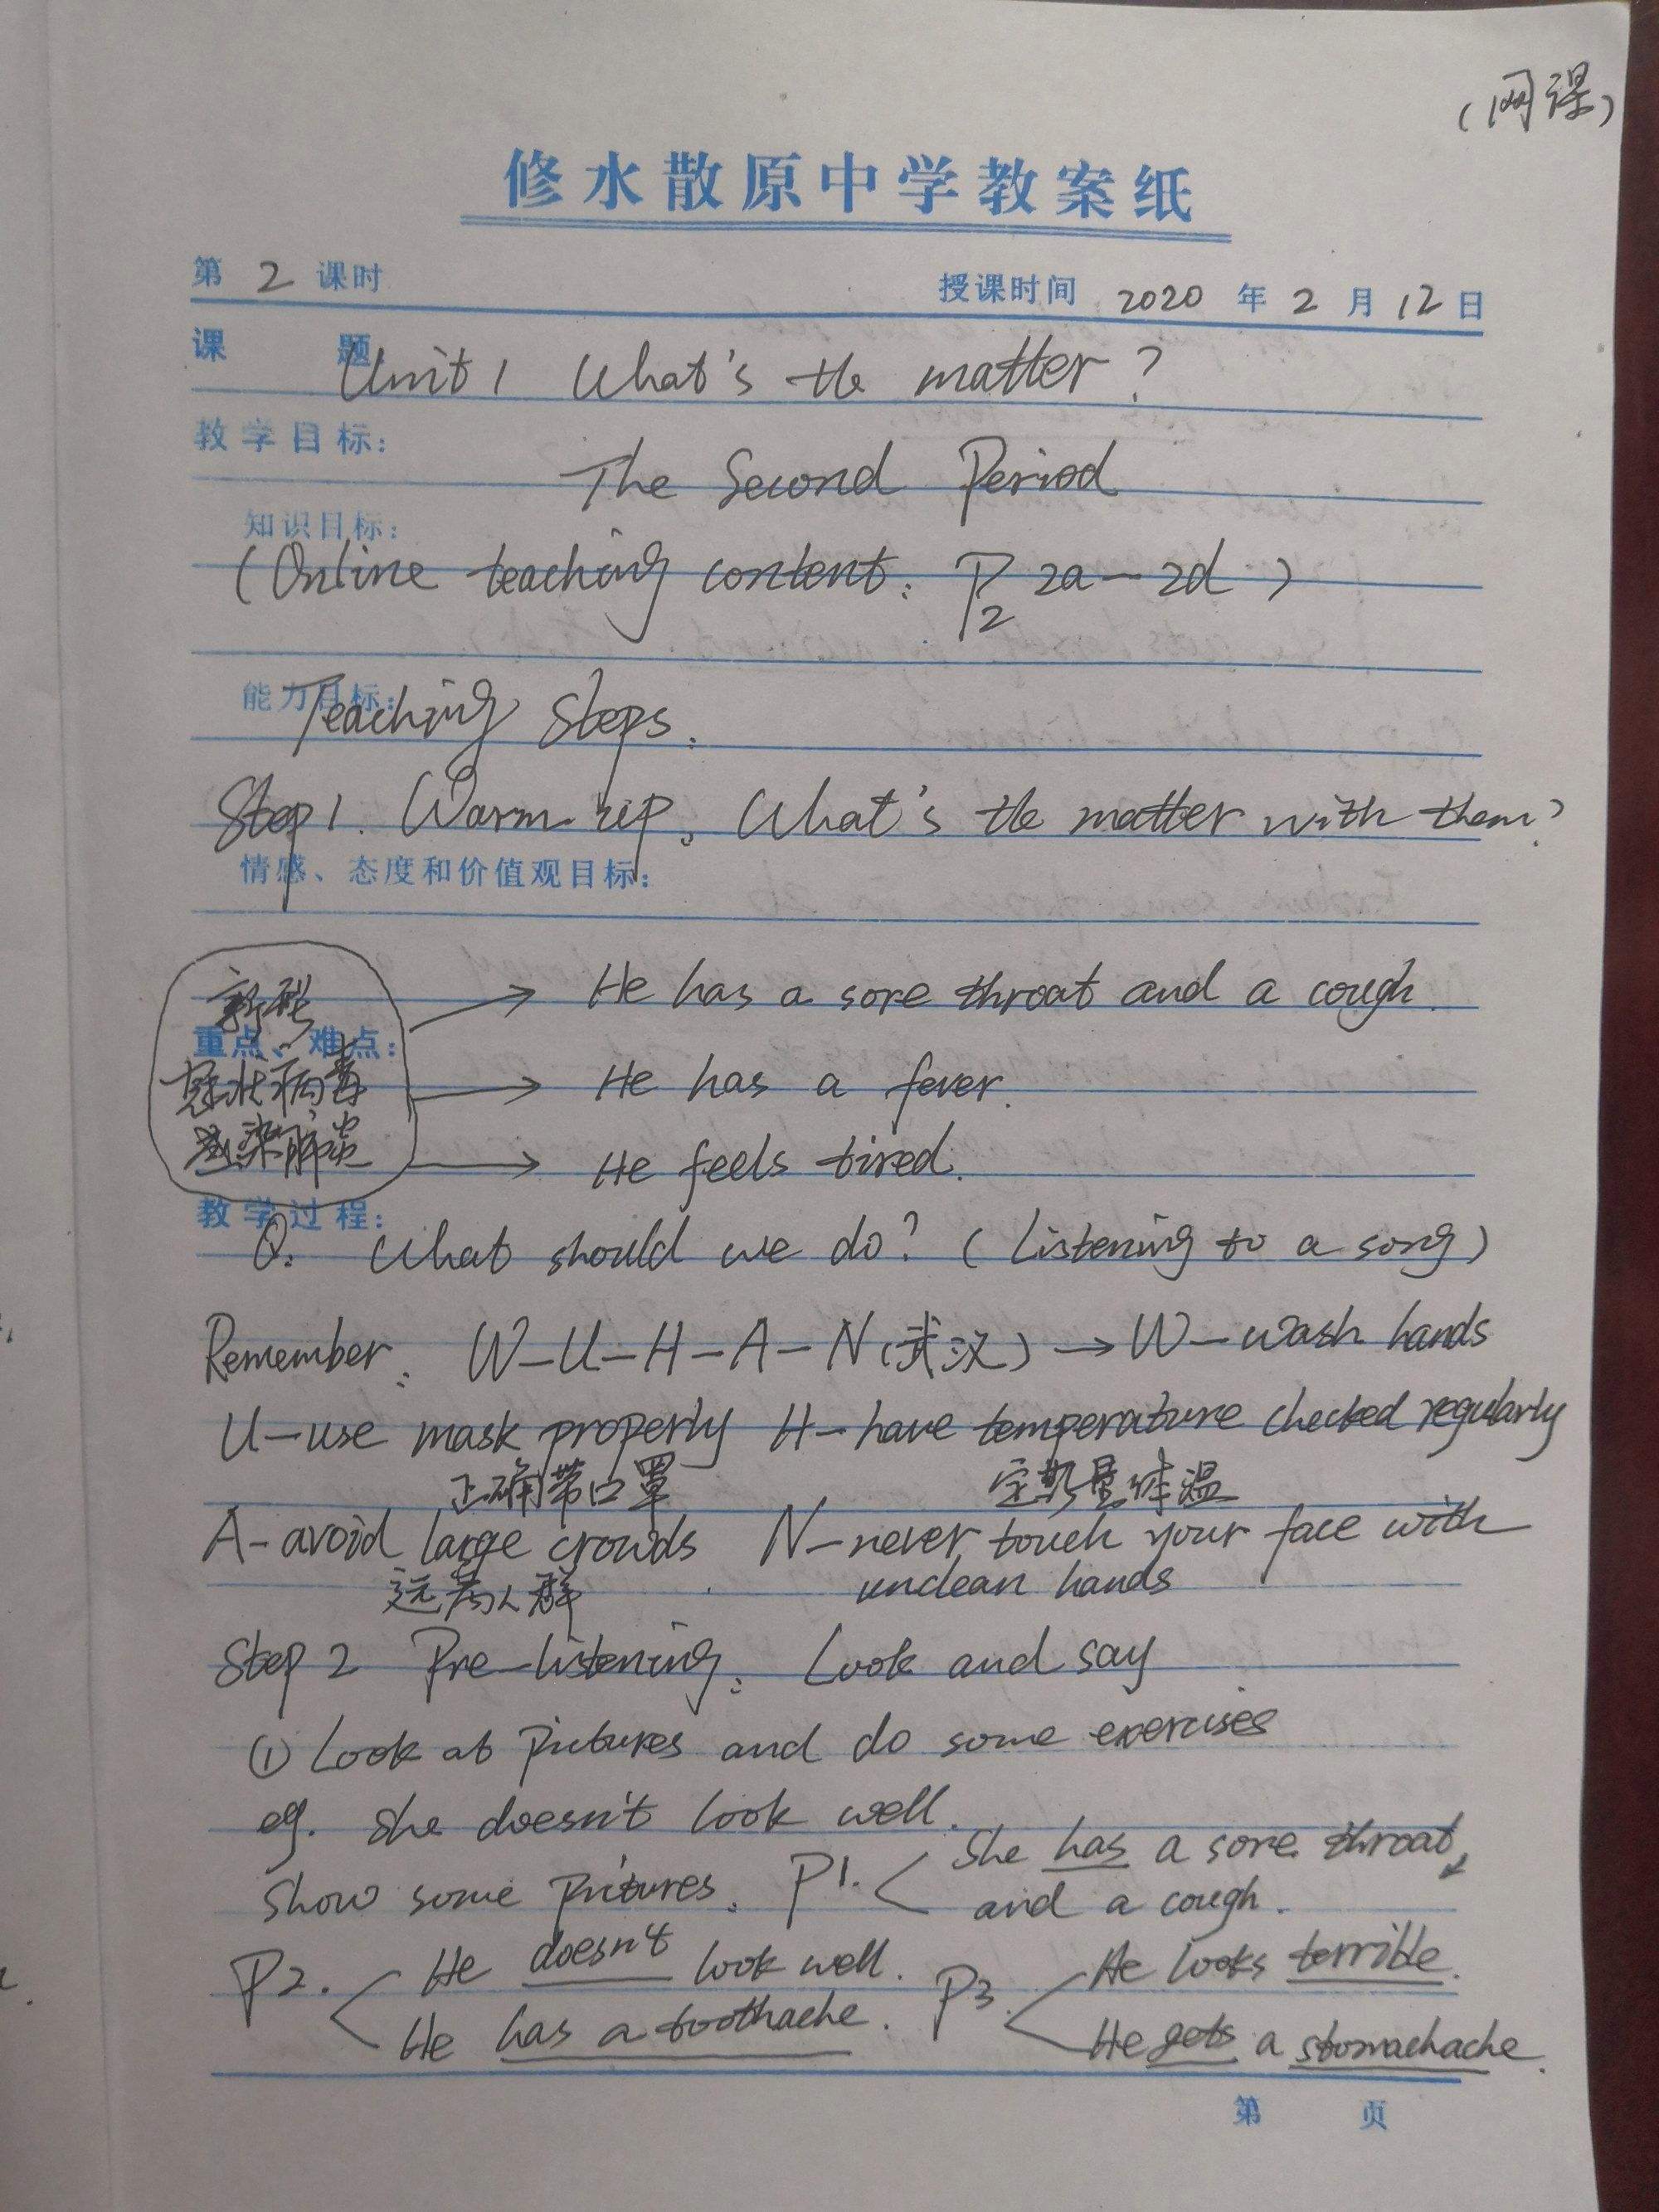 (网课)
修水散原中学教案纸
第 2 课时 授课时间 2020 年 2 月 12 日
课 题 Unit 1 What's the matter?
教学目标:
The Second Period
知识目标:
(Online teaching content: P2 2a-2d)
能力目标:
Teaching Steps:
Step 1. Warm up: What's the matter with them?
情感、态度和价值观目标:
新型 → He has a sore throat and a cough.
重点、难点:
冠状病毒 → He has a fever.
感染肺炎 → He feels tired.
教学过程:
Q: What should we do? (Listening to a song)
Remember: W-U-H-A-N (武汉) → W-wash hands
U-use mask properly H-have temperature checked regularly
正确带口罩 定期量体温
A-avoid large crowds N-never touch your face with
远离人群 unclean hands
Step 2 Pre-listening: Look and say
① Look at pictures and do some exercises
eg. She doesn't look well.
She has a sore throat
Show some pictures: P1. and a cough.
P2. He doesn't look well. P3. He looks terrible.
He has a toothache. He gets a stomachache.
第 页